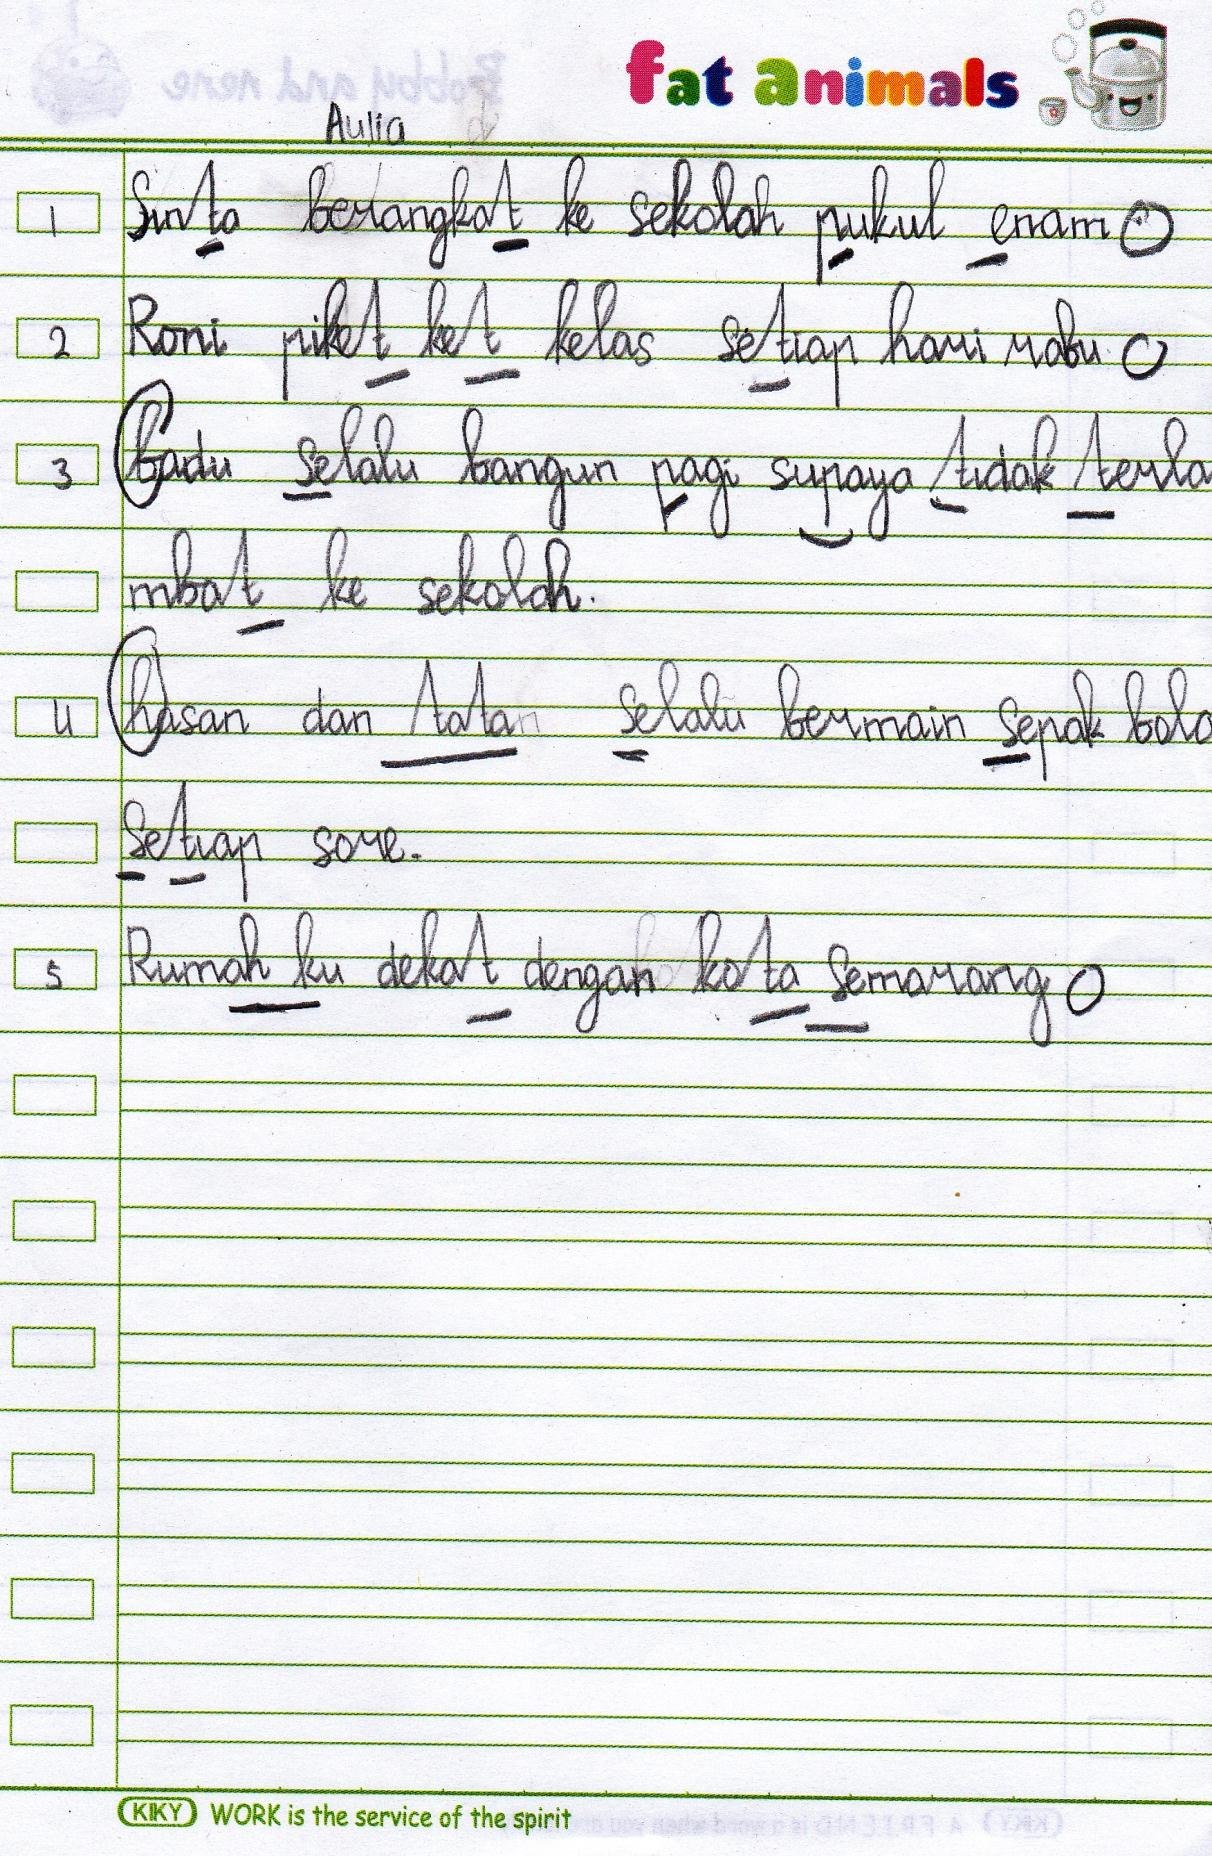 fat animals
Aulia
1 Sinta berangkat ke sekolah pukul enam
2 Roni piket ket kelas setiap hari rabu.
3 badu selalu bangun pagi supaya tidak terla
mbat ke sekolah.
4 hasan dan tatan selalu bermain sepak bola
setiap sore.
5 Rumah ku dekat dengan kota Semarang
KIKY WORK is the service of the spirit